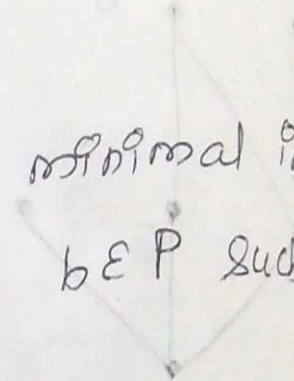 minimal i
b ε P suc